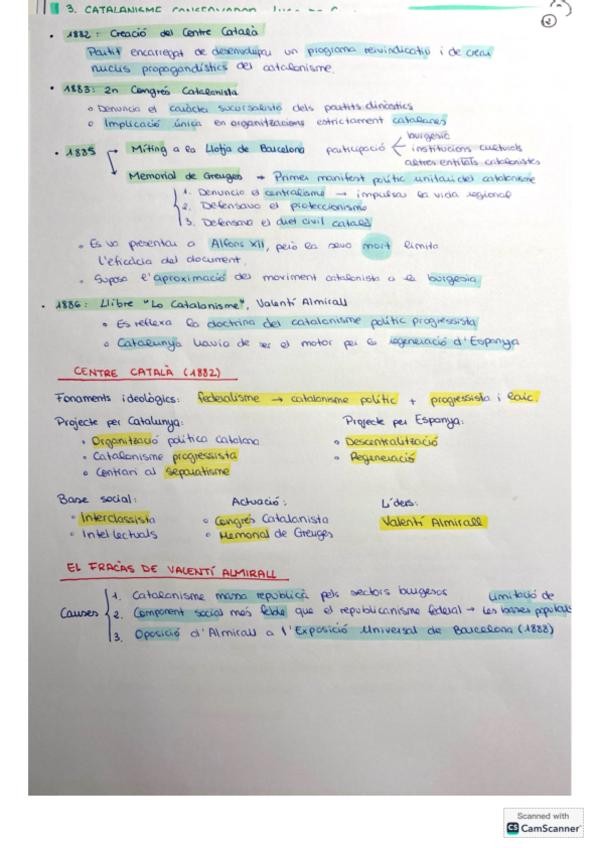 3. CATALANISME
2
• 1882: Creació del Centre Català
Partit encarregat de desenvolupar un programa reivindicatiu i de crear
nuclis propagandístics del catalanisme.
• 1883: 2n Congrés Catalanista
◦ Denuncia el caràcter sucursalista dels partits dinàstics
◦ Implicació única en organitzacions estrictament catalanes
• 1885 → Míting a la Llotja de Barcelona participació < burgesia
institucions culturals
altres entitats catalanistes
Memorial de Greuges → Primer manifest polític unitari del catalanisme
1. Denuncia el centralisme → impulsar la vida regional
2. Defensava el proteccionisme
3. Defensava el dret civil català
◦ Es va presentar a Alfons XII, però la seva mort limita
l'eficàcia del document.
◦ Suposa l'aproximació del moviment catalanista a la burgesia
• 1886: Llibre "Lo Catalanisme", Valentí Almirall
◦ Es reflexa la doctrina del catalanisme polític progressista
◦ Catalunya havia de ser el motor per la regeneració d'Espanya
CENTRE CATALÀ (1882)
Fonaments ideològics: federalisme → catalanisme polític + progressista i laic.
Projecte per Catalunya: Projecte per Espanya:
◦ Organització política catalana ◦ Descentralització
◦ Catalanisme progressista ◦ Regeneració
◦ Contrari al separatisme
Base social: Actuació: Líders:
◦ Interclassista ◦ Congrés Catalanista Valentí Almirall
◦ Intel·lectuals ◦ Memorial de Greuges
EL FRACÀS DE VALENTÍ ALMIRALL
1. Catalanisme massa republicà pels sectors burgesos Limitació de
Causes 2. Component social més feble que el republicanisme federal → les bases populars
3. Oposició d'Almirall a l'Exposició Universal de Barcelona (1888)
Scanned with
CS CamScanner